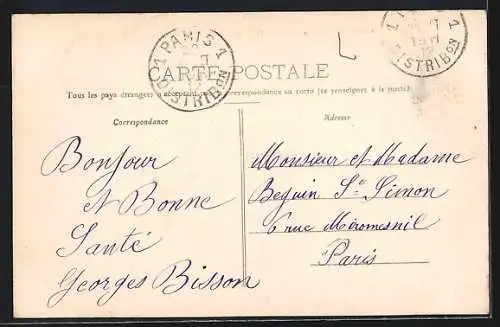 1 PARIS 1
DISTRIBON
1
DISTRIBON
CARTE POSTALE
Tous les pays étrangers n'acceptent pas la correspondance au recto (se renseigner à la poste)
Correspondance
Bonjour
et Bonne
Santé
Georges Bisson
Adresse
Monsieur et Madame
Beguin St Simon
6 rue Miromesnil
Paris